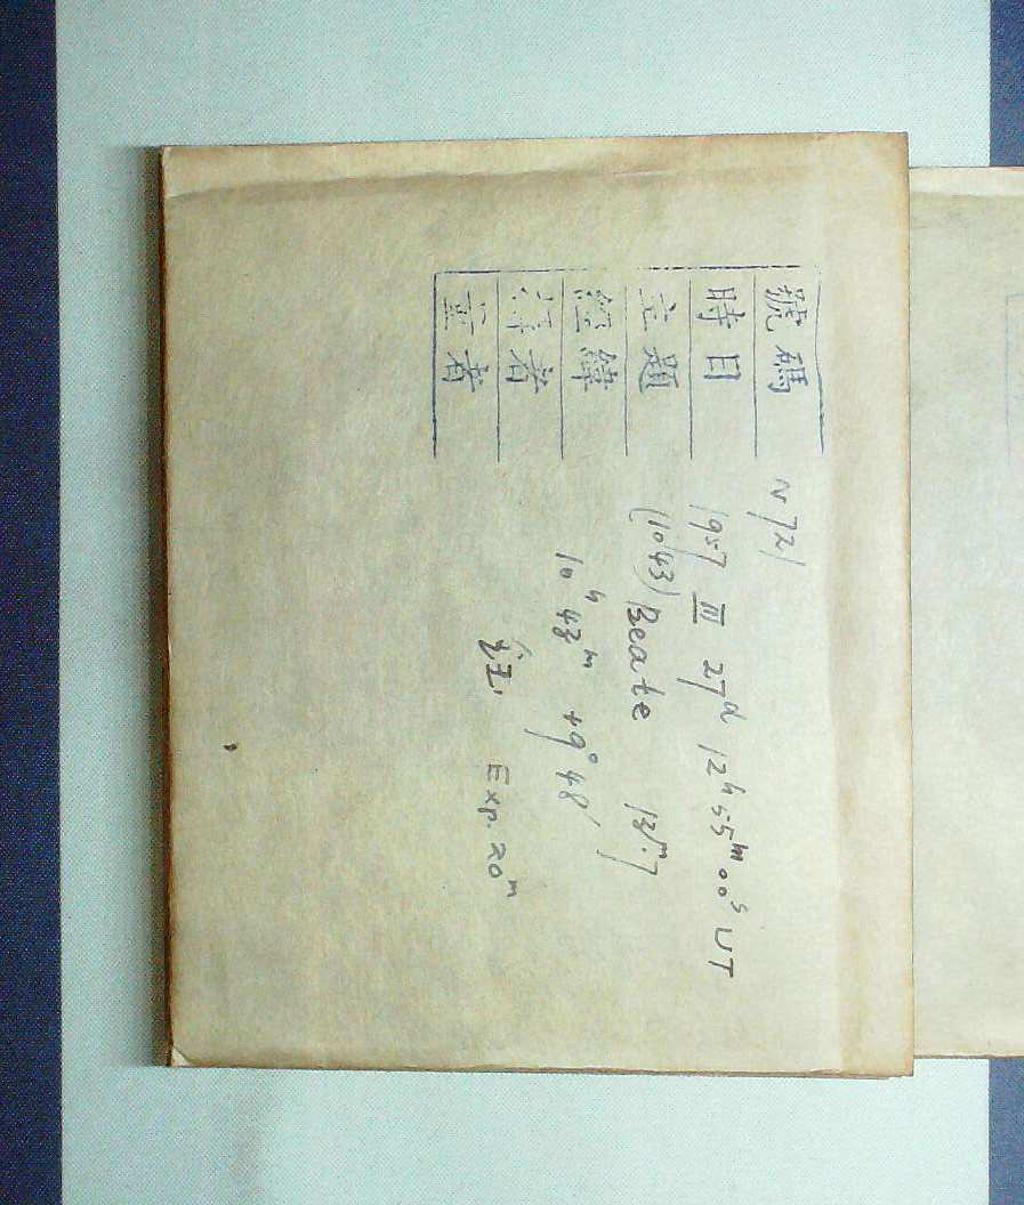 號碼 N 721
時日 1957 III 27ᵈ 12ʰ 55ᵐ 00ˢ UT
主題 (1043) Beate 13ᵐ.7
經緯 10ʰ 43ᵐ +9° 48′
者 Exp. 20ᵐ
量者